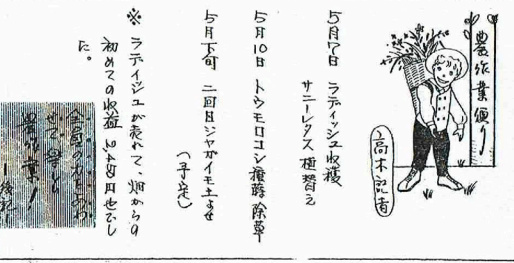 農作業便り
高木記者
5月7日 ラディッシュ収穫
サニーレタス植替え
5月10日 トウモロコシ播蒔 除草
5月下旬 二回目ジャガイモ土よせ
(予定)
※ ラディッシュが売れて、畑からの
初めての収益 248円也でし
た。
全員の力をあわ
せて 学ぶ
農作業!